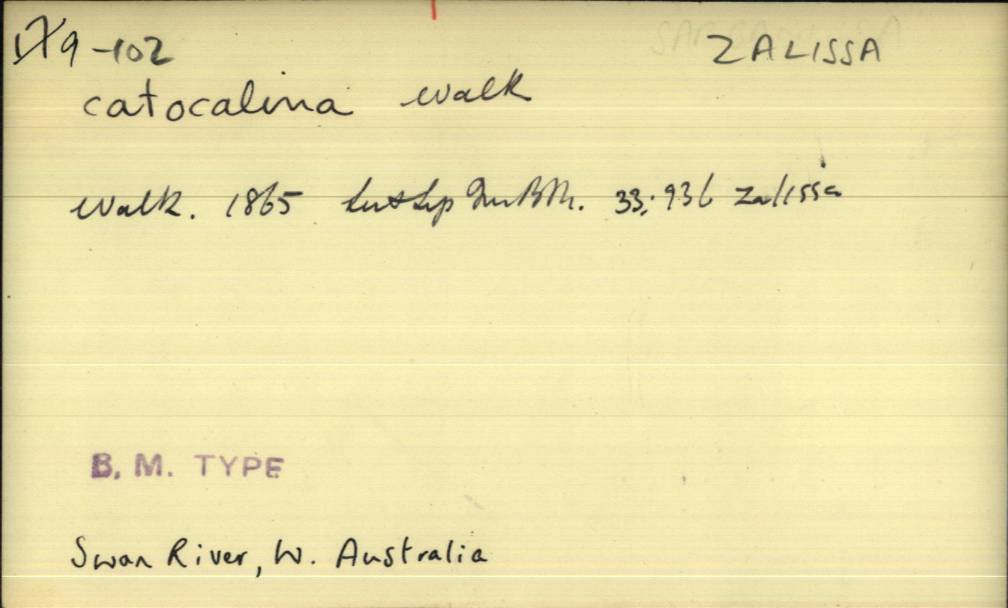 IX 9-102 ZALISSA
catocalina Walk
Walk. 1865 List Lep Ins B.M. 33: 936 Zalissa
B. M. TYPE
Swan River, W. Australia